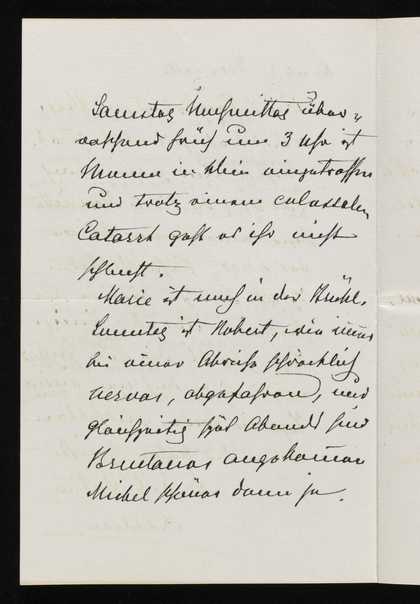 Samstag Nachmittag über„
raschend früh um 3 Uhr ist
Mama in Wien eingetroffen
und trotz einem colossalen
Catarrh geht es ihr nicht
schlecht.
Marie ist noch in der Brühl.
Sonntag ist Robert, wie immer
bei einer Abreise schrecklich
nervös, abgefahren, und
gleichzeitig spät Abends sind
Brentanos angekommen
Michel